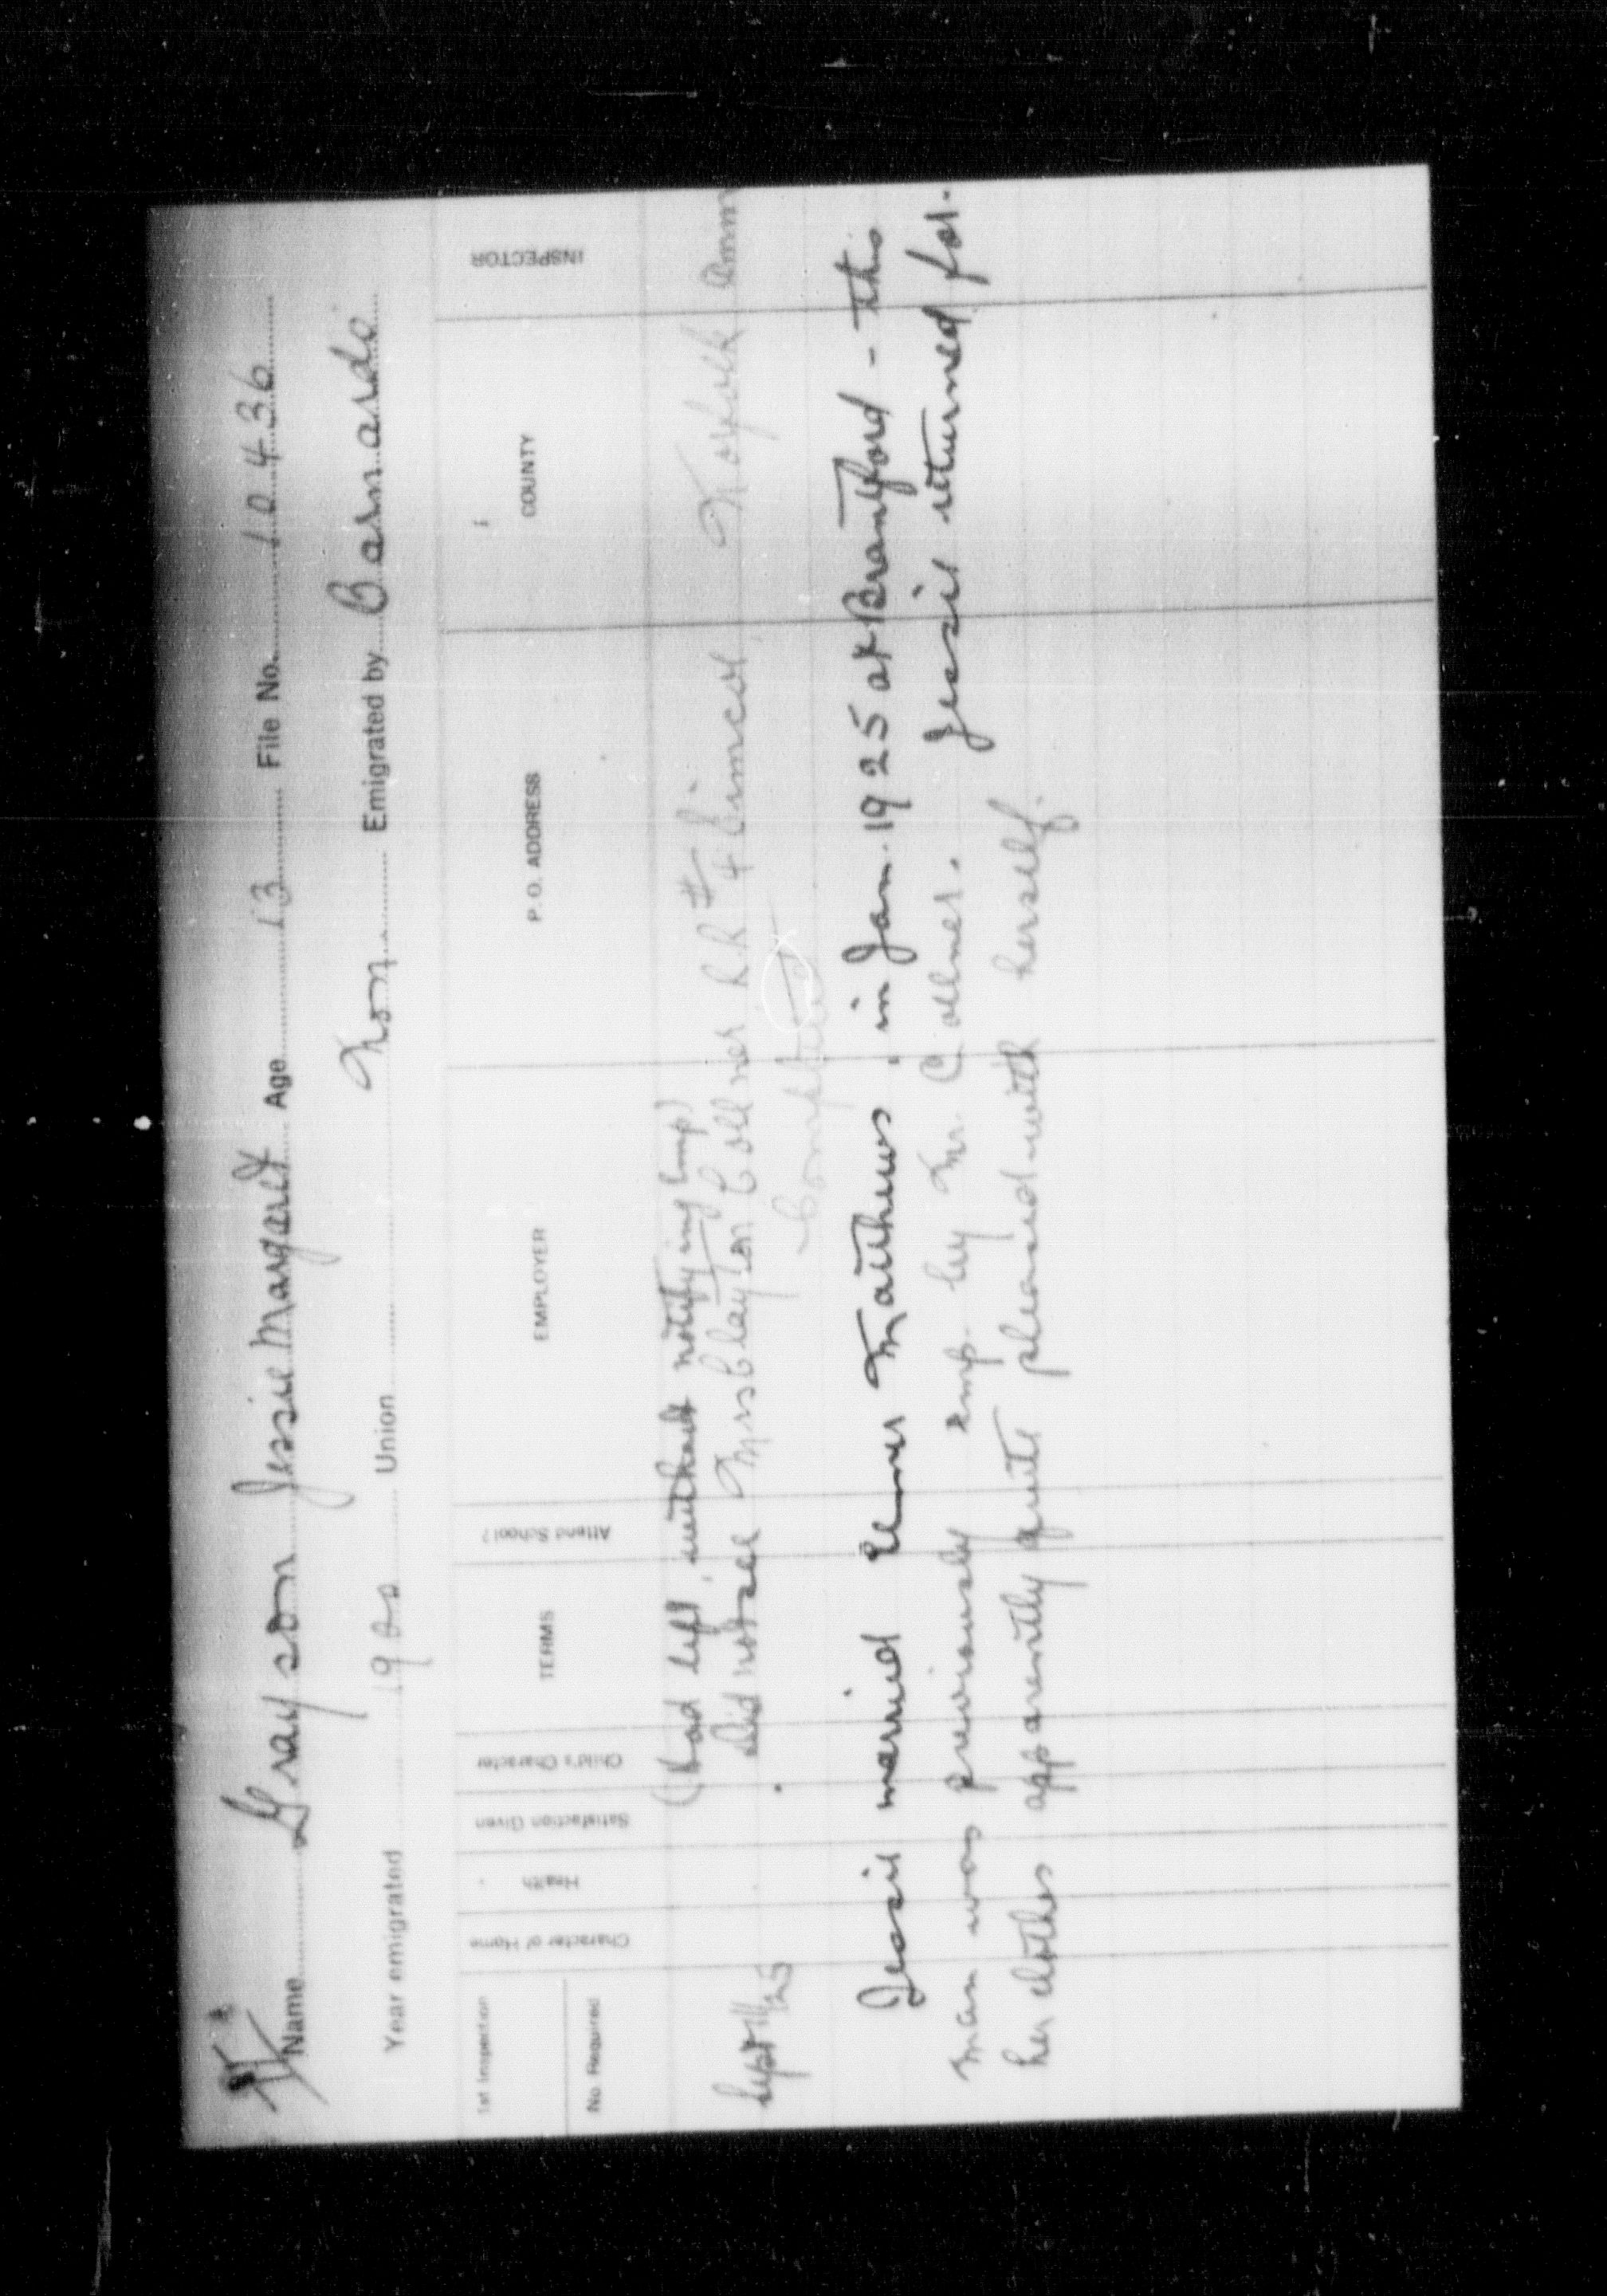 Name Grayson Jessie Margaret Age 13 File No. 10436
Year emigrated 1920 Union Non. Emigrated by Barnardo
1st Inspection
No. Required
Character of Home
Health
Satisfaction Given
Child's Character
TERMS
Attend School?
EMPLOYER
P.O. ADDRESS
COUNTY
INSPECTOR
(Had left, without notifying Emp)
Sept 11/25 Did not see Mrs Clayton Collver R.R # 4 Simcoe Norfolk
Completed
Jessie married Elmer Mathews in Jan. 1925 at Brantford - this
man was previously emp. by Mr Collver. Jessie returned for
her clothes apparently quite pleased with herself.